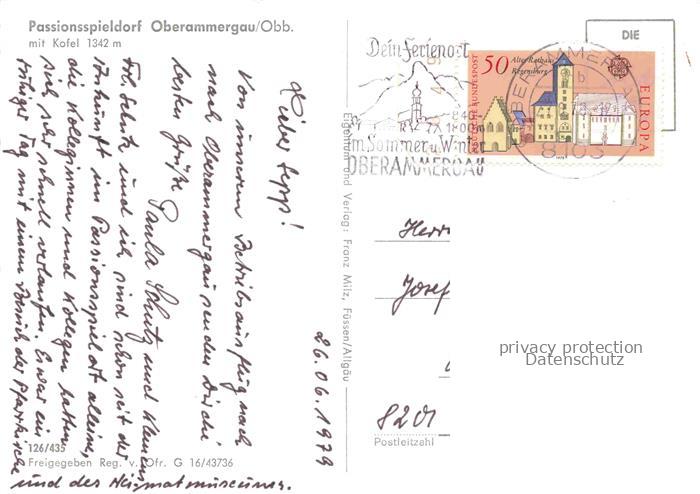 Passionsspieldorf Oberammergau/Obb.
mit Kofel 1342 m
26.06.1979
Lieber Sepp!
Von unserem Betriebsausflug nach
nach Oberammergau senden Dir die
besten Grüße Paula Schutz und
Frl. Schutz und ich sind schon seit der
Ankunft im Passionsspielort alleine,
die Kolleginnen und Kollegen hatten
sich sehr schnell verlaufen. Es war ein
ruhiger Tag mit einem Besuch der Pfarrkirche
und des Heimatmuseums.
126/435
Freigegeben Reg. v. Ofr. G 16/43736
Eigentum und Verlag: Franz Milz, Füssen/Allgäu
Dein Ferienort
im Sommer u. Winter
OBERAMMERGAU
OBERAMMERGAU
b
8103
DEUTSCHE BUNDESPOST
50
Altes Rathaus
Regensburg
EUROPA
1978
DIE
Herrn
Josef
8201
Postleitzahl
privacy protection
Datenschutz